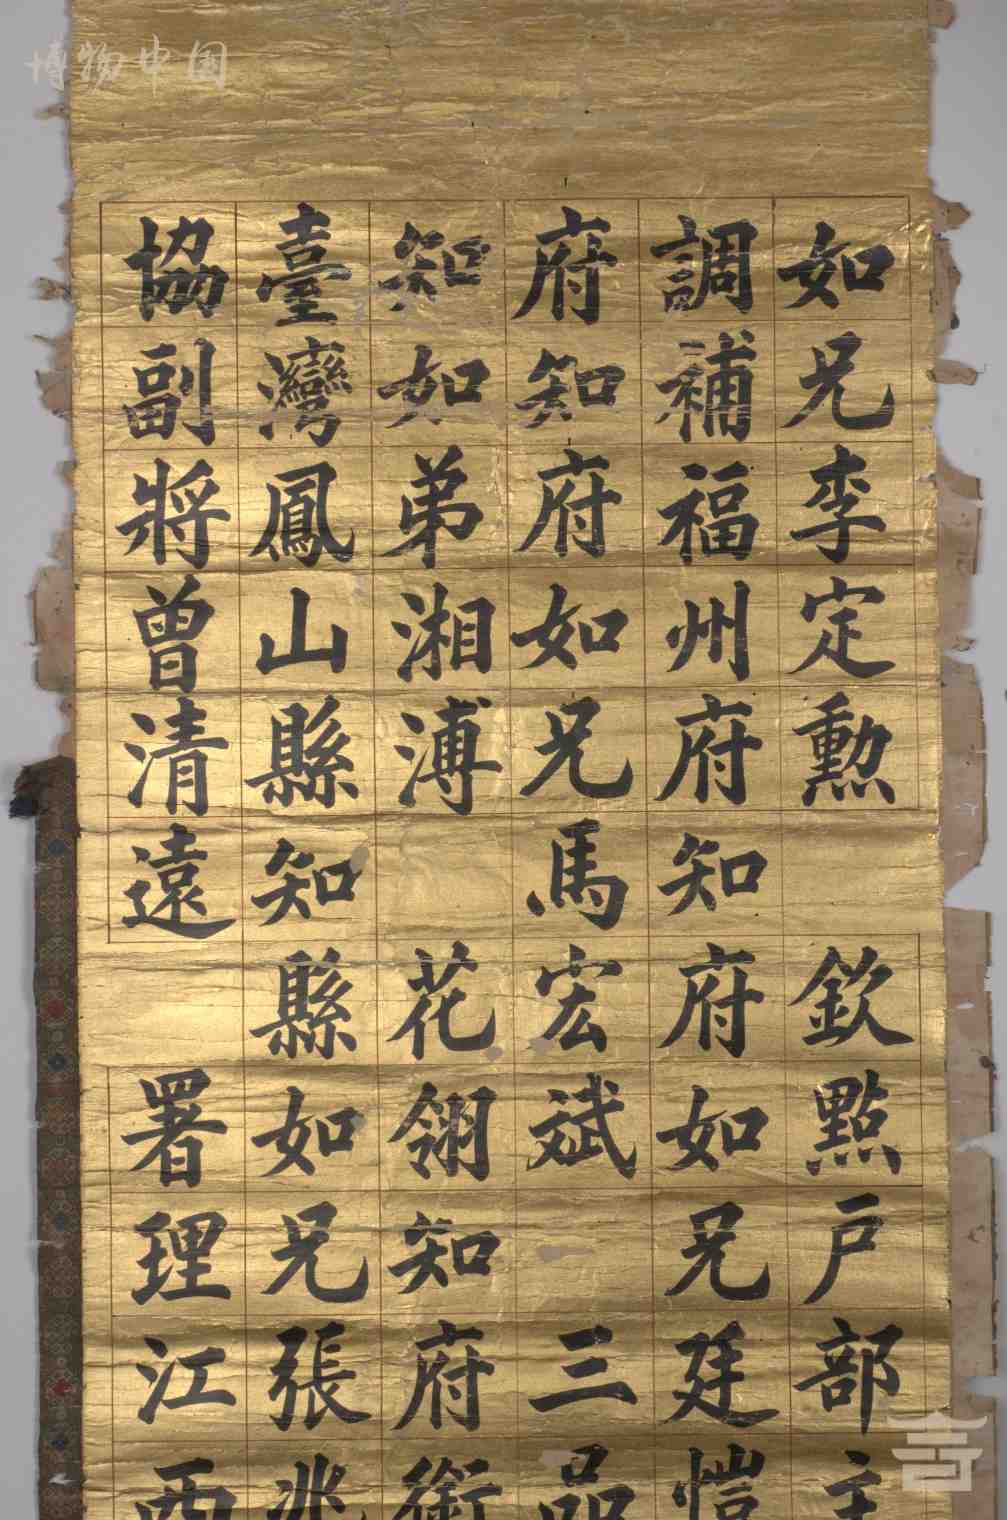 博物中国
如兄李定勲 欽點戶部主
調補福州府知府如兄廷愷
府知府如兄馬宏斌 三品
知如弟湘溥 花翎知府銜
臺灣鳳山縣知縣如兄張兆
協副將曾清遠 署理江西